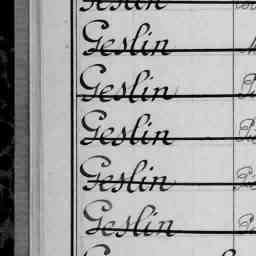 Geslin
Geslin
Geslin
Geslin
Geslin
Geslin